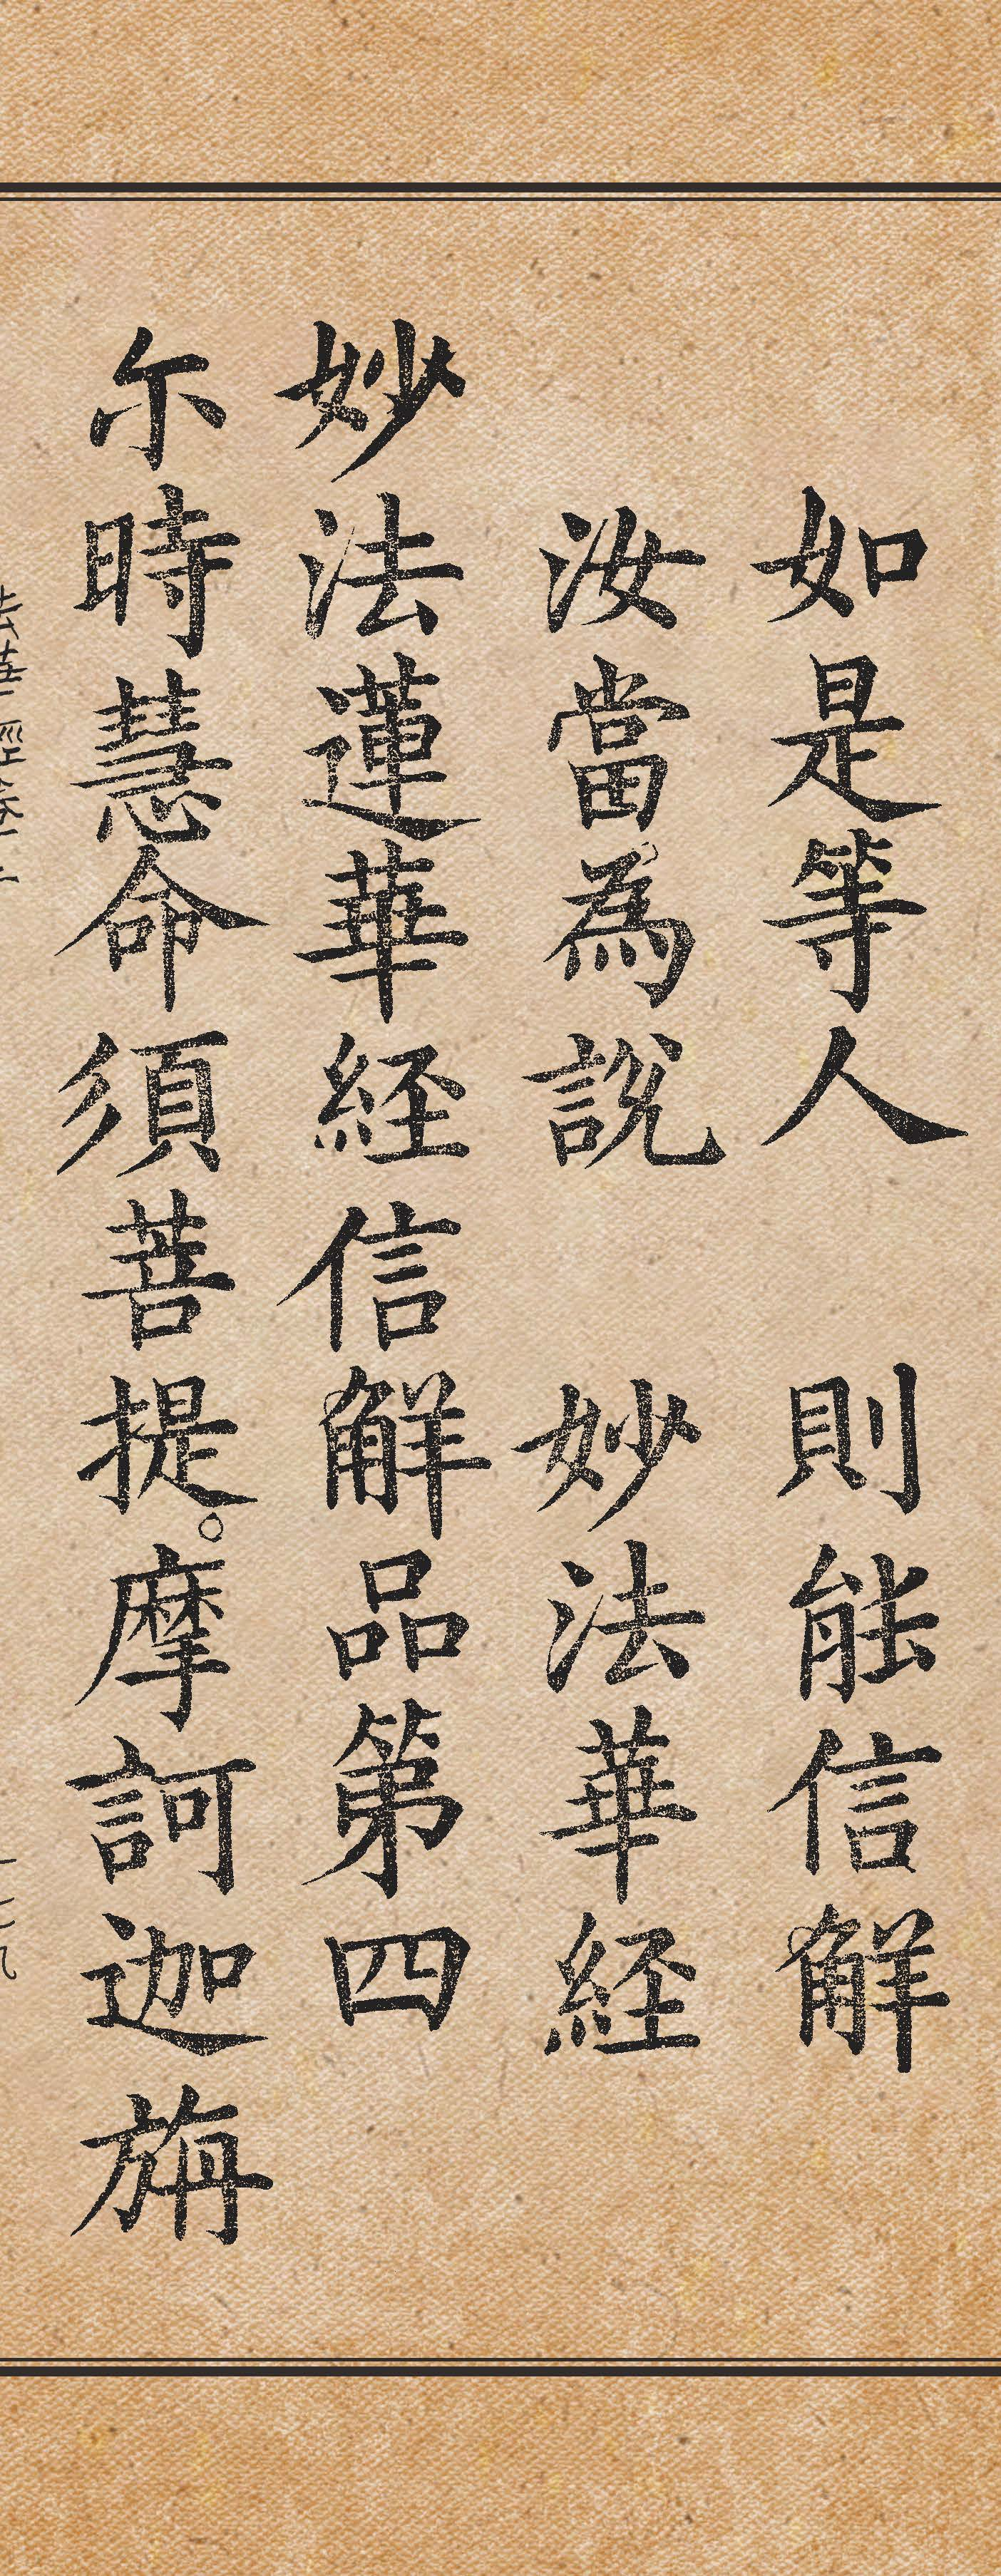 如是等人　則能信解
汝當為說　妙法華経
妙法蓮華経信解品第四
尒時慧命須菩提。摩訶迦旃